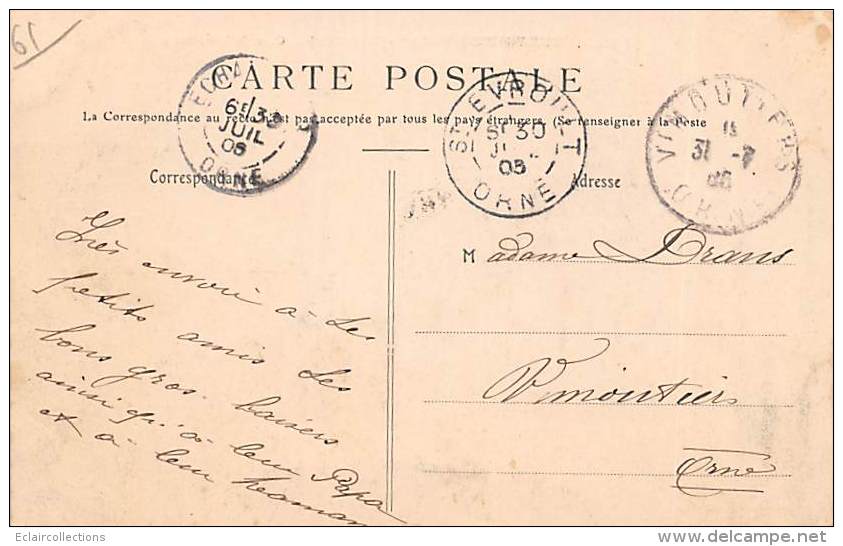 61
CARTE POSTALE
La Correspondance au recto n'est pas acceptée par tous les pays étrangers. (Se renseigner à la Poste
ECHA
6E 30
JUIL
06
ORNE
ST EVROULT
5E 30
06
ORNE
VIMOUTIERS
31 -7
06
ORNE
Correspondance
Adresse
envoi à Les
petits amis Les
bons gros baisers
ainsi qu'à leur Papa
et à leur maman
Madame Drans
Vimoutiers
Orne
Eclaircollections
www.delcampe.net